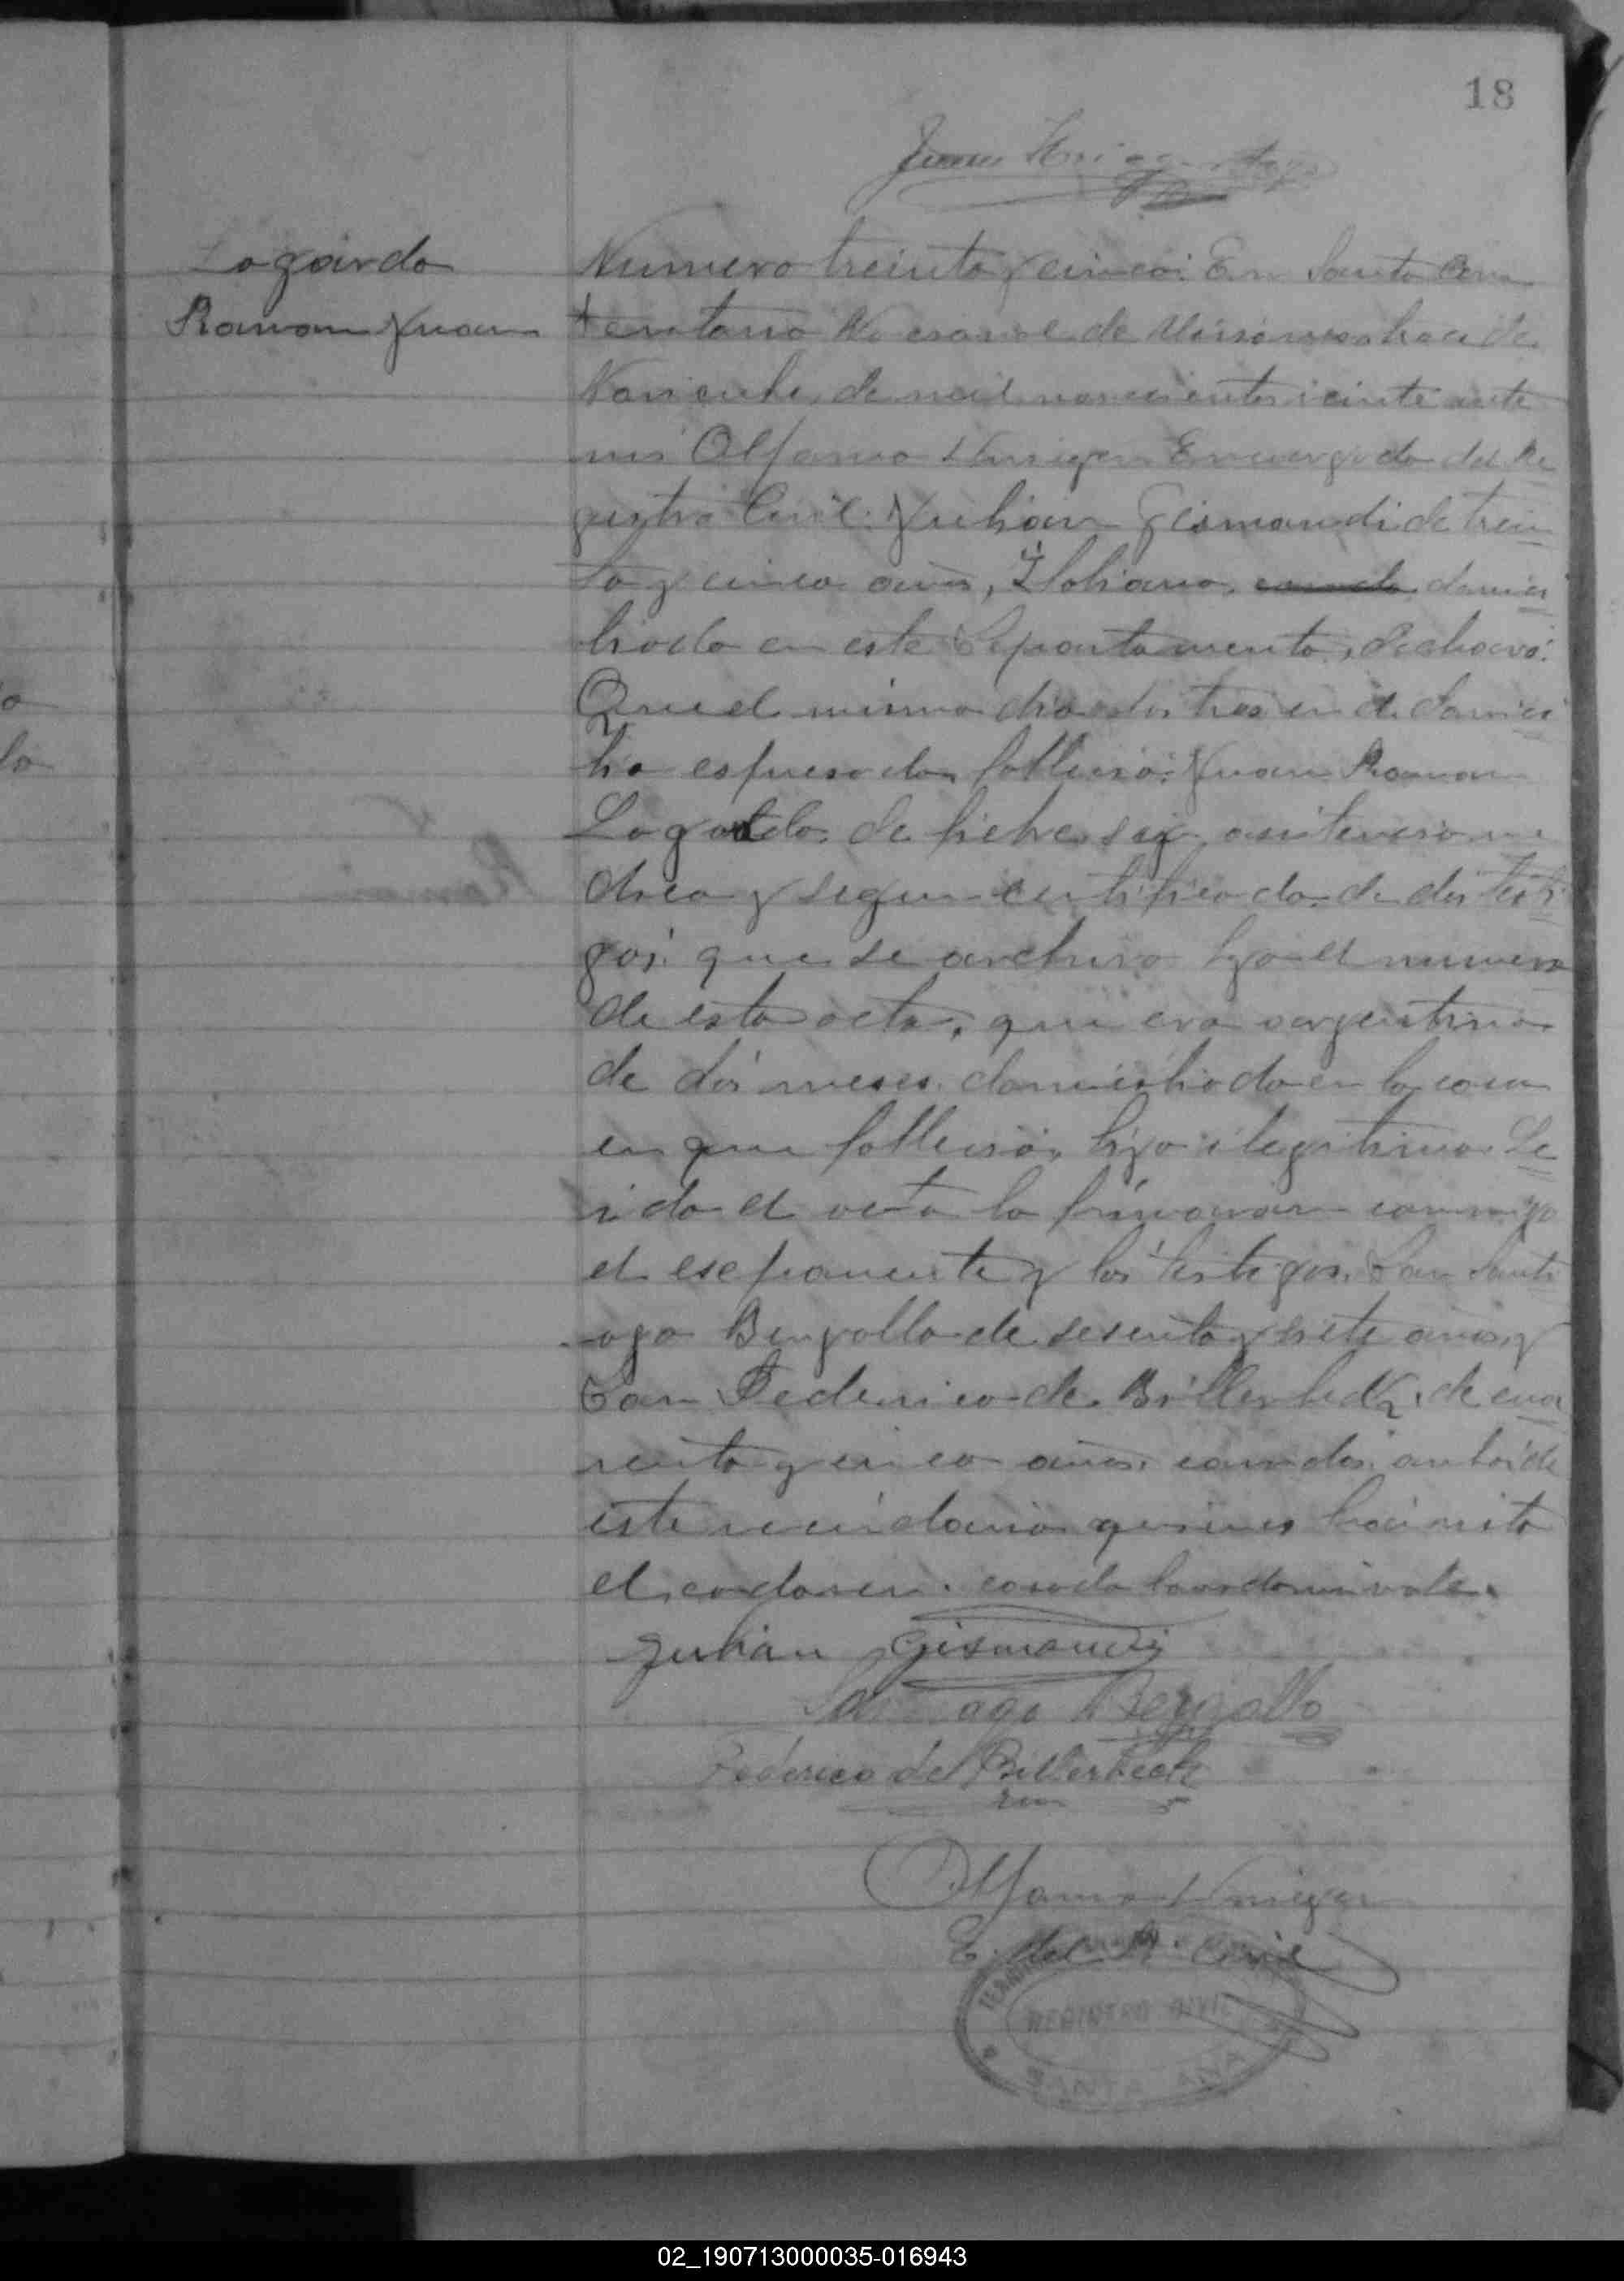 18
Juan
Logardo
Ramon Juan
Numero treinta y cinco: En Santa Ana
territorio Nacional de Misiones a tres de
Noviembre de mil novecientos veinte ante
mi Alfonso Encargado del Re
gistro Civil: Julián Gismondi de trein
ta y cinco años, Italiano, casado, domici
liado en este Departamento, declaró:
Que el mismo dia a las tres en el domici
lio espresado, falleció: Juan Ramon
Logardo, de fiebre, sin asistencia me
dica y segun certificado de dos testi
gos que se archiva bajo el numero
de esta acta, que era argentino
de dos meses, domiciliado en la casa
en que falleció, hijo ilegitimo. Le
ida el acta la firmaron conmigo
el esponente y los testigos, Don Santi
ago Bergallo de sesenta y siete años, y
Don Federico de Billerbeck, de cua
renta y cinco años, casados, ambos de
este vecindario quienes han visto
el cadaver. casado no vale.
Julián Gismondi
Santiago Bergallo
Federico de Billerbeck
Alfonso
E. del R. Civil
REGISTRO CIVIL
SANTA ANA
02_190713000035-016943